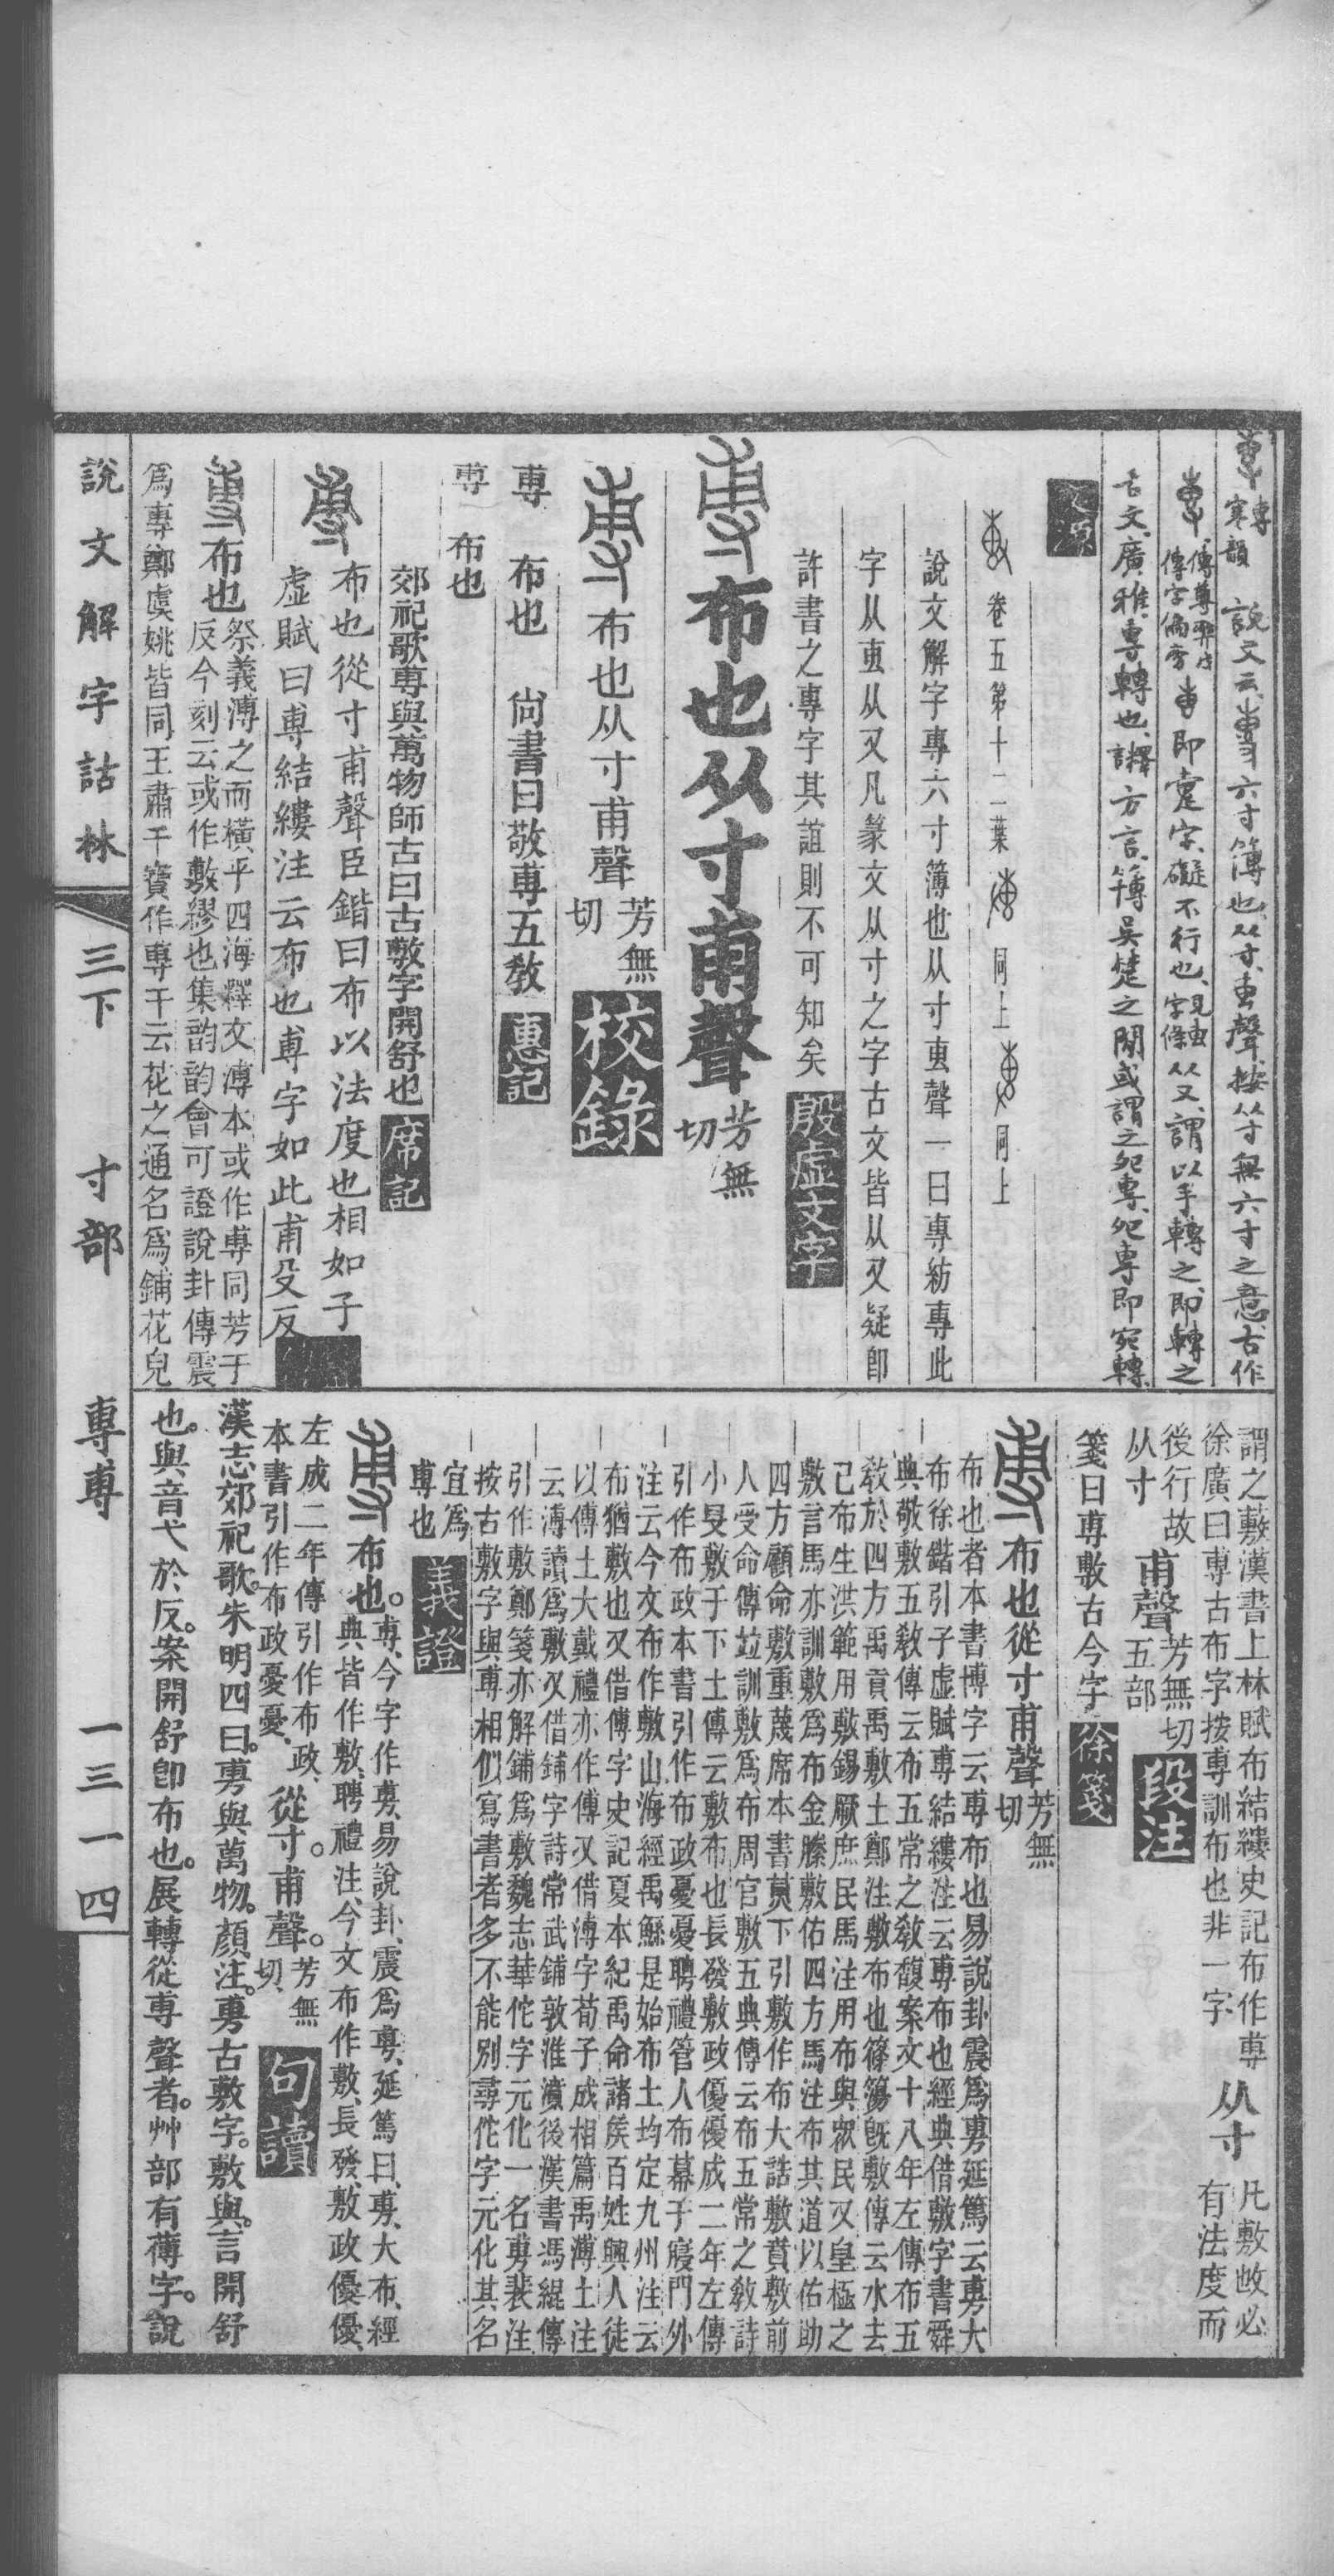 專寒韻 說文云專六寸簿也从寸叀聲按从寸無六寸之意古作
傳尊彝戊傳字偏旁叀即疐字礙不行也見叀字條从又謂以手轉之即轉之
古文廣雅專轉也釋詁方言簙吳楚之閒或謂之夗專夗專即宛轉
文源
卷五第十二葉 同上 同上
說文解字專六寸簿也从寸叀聲一曰專紡專此
字从叀从又凡篆文从寸之字古文皆从又疑即
許書之專字其誼則不可知矣 殷虛文字
布也从寸甫聲芳無切
布也从寸甫聲芳無切 校錄
尃 布也 尙書曰敬尃五教 惠記
尃 布也
郊祀歌尃與萬物師古曰古敷字開舒也 席記
布也從寸甫聲臣鍇曰布以法度也相如子
虛賦曰尃結縷注云布也尃字如此甫殳反
布也祭義溥之而橫乎四海釋文溥本或作尃同芳于
反今刻云或作敷繆也集韵韵會可證說卦傳震
爲專鄭虞姚皆同王肅干寶作專干云花之通名爲鋪花皃
謂之敷漢書上林賦布結縷史記布作尃
徐廣曰尃古布字按尃訓布也非一字 从寸 凡敷攺必有法度而
後行故从寸 甫聲 芳無切五部 段注
箋曰尃敷古今字 徐箋
布也從寸甫聲芳無切
布也者本書博字云尃布也易說卦震爲旉延篤云旉大
布徐鍇引子虛賦尃結縷注云尃布也經典借敷字書舜
典敬敷五敎傳云布五常之敎馥案文十八年左傳布五
敎於四方禹貢禹敷土鄭注敷布也篠簜旣敷傳云水去
已布生洪範用敷錫厥庶民馬注用布與眾民又皇極之
敷言馬亦訓敷爲布金縢敷佑四方馬注布其道以佑助
四方顧命敷重蔑席本書莫下引敷作布大誥敷賁敷前
人受命傳竝訓敷爲布周官敷五典傳云布五常之敎詩
小旻敷于下土傳云敷布也長發敷政優優成二年左傳
引作布政本書引作布政憂憂聘禮管人布幕于寢門外
注云今文布作敷山海經禹鯀是始布土均定九州注云
布猶敷也又借傅字史記夏本紀禹命諸矦百姓興人徒
以傅土大戴禮亦作傅又借溥字荀子成相篇禹溥土注
云溥讀爲敷又借鋪字詩常武鋪敦淮濆後漢書馮緄傳
引作敷鄭箋亦解鋪爲敷魏志華佗字元化一名旉裴注
按古敷字與尃相似寫書者多不能別尋佗字元化其名
宜爲尃也 義證
布也。尃、今字作旉、易說卦、震爲旉、延篤曰、旉、大布、經
典皆作敷、聘禮注、今文布作敷、長發、敷政優優、
左成二年傳引作布政、
本書引作布政憂憂、從寸。甫聲。芳無切、 句讀
漢志郊祀歌。朱明四曰。旉與萬物。顏注。旉古敷字。敷與。言開舒
也。與音弋於反。案開舒卽布也。展轉從尃聲者。艸部有䔈字。說
說文解字詁林 三下 寸部 專尃 一三一四